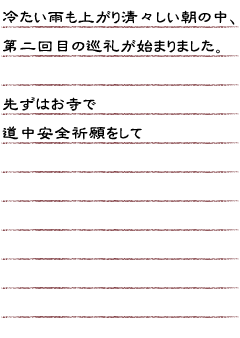 冷たい雨も上がり清々しい朝の中、
第二回目の巡礼が始まりました。
先ずはお寺で
道中安全祈願をして